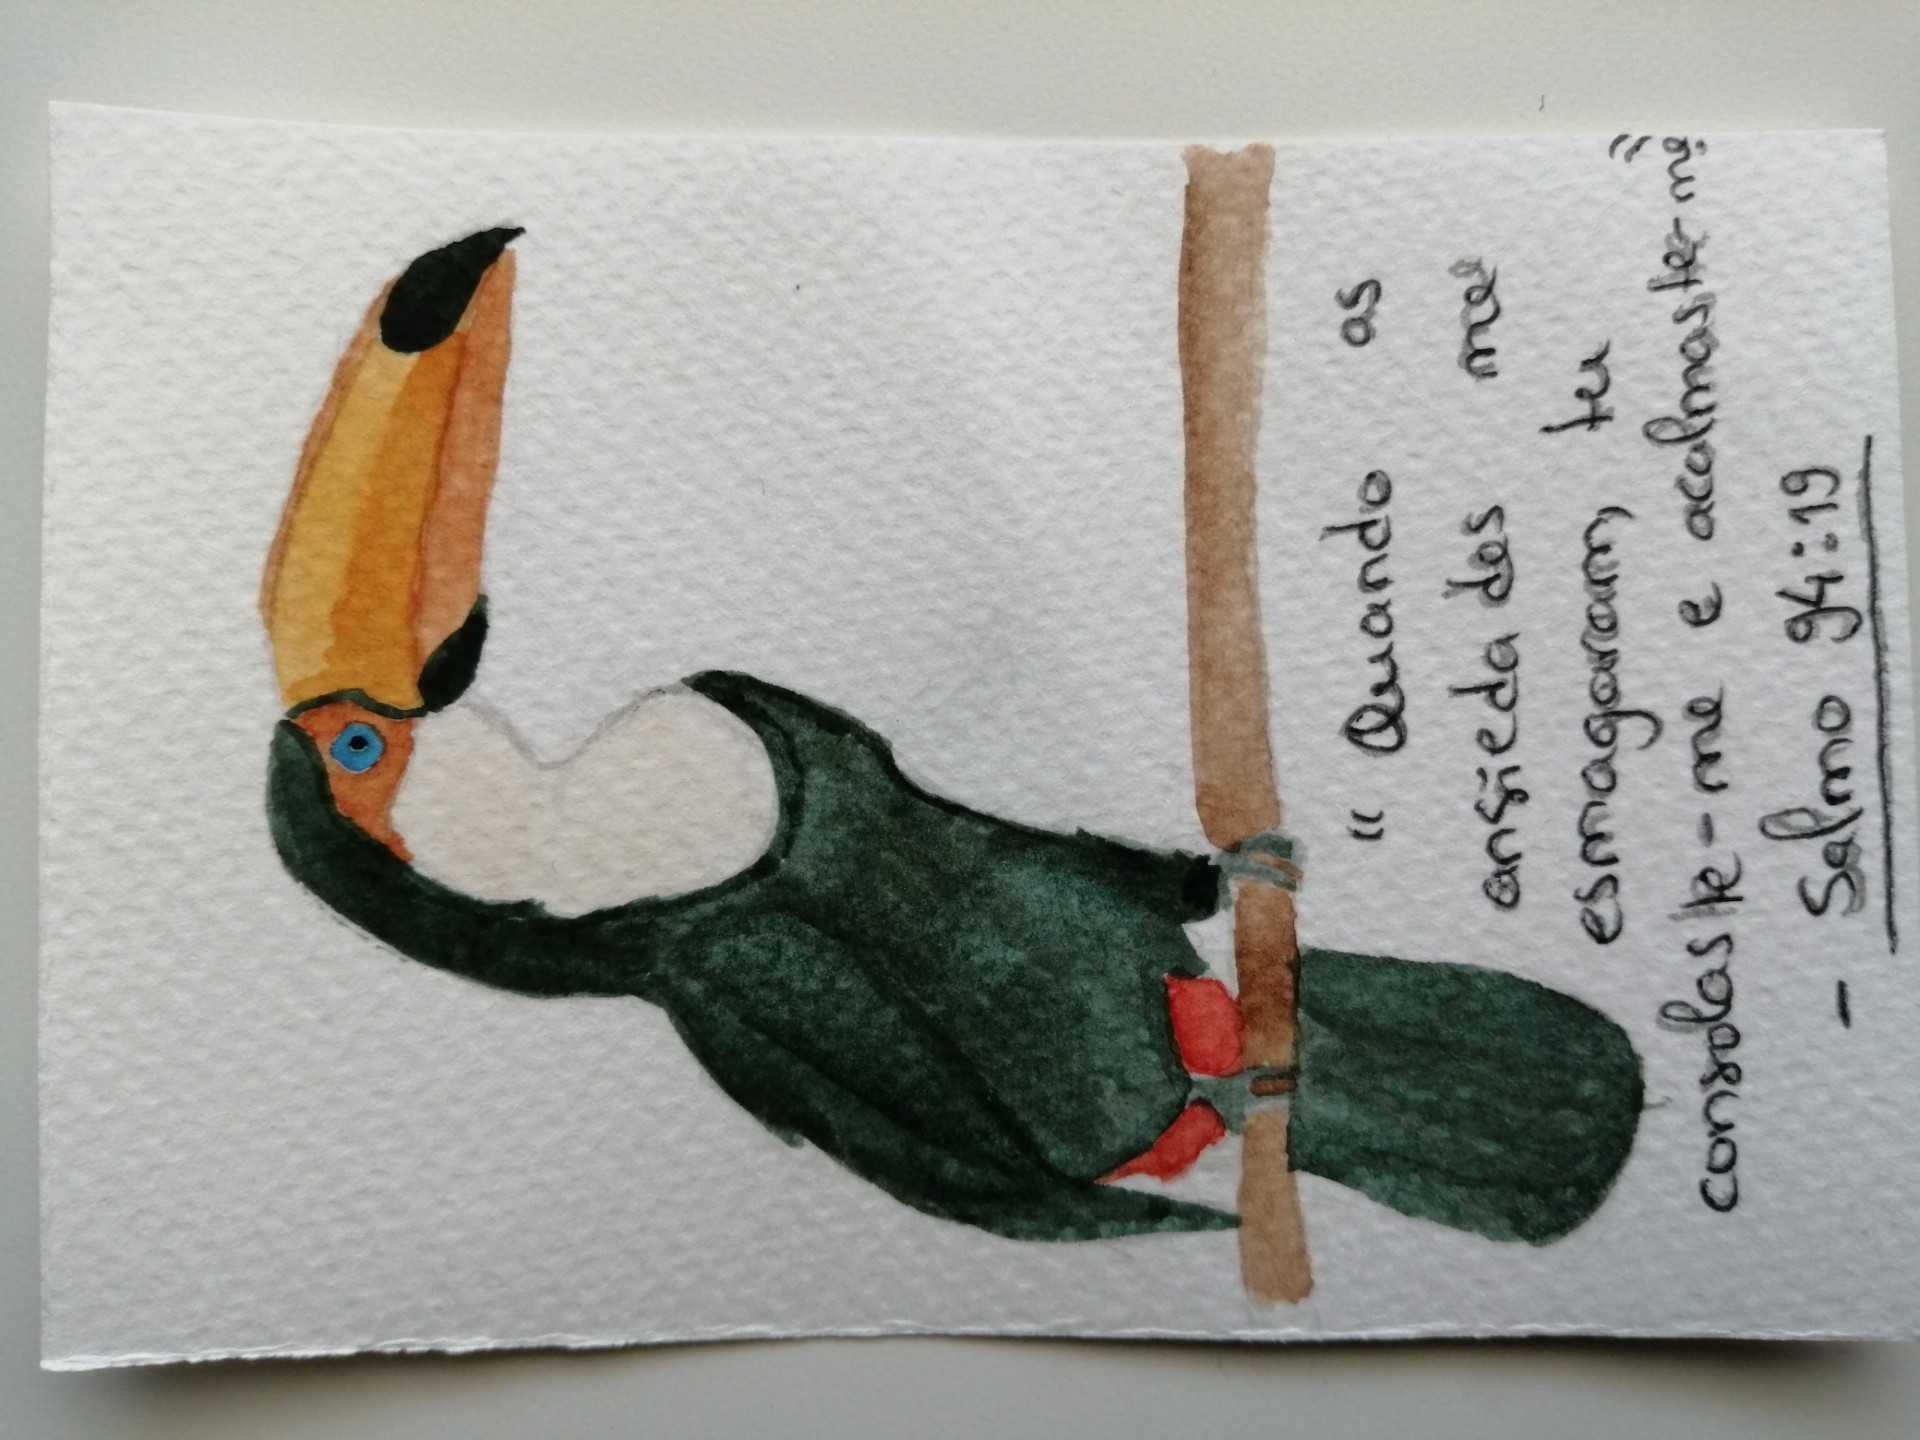 “ Quando as
ansiedades me
esmagaram, tu
consolaste-me e acalmaste-me”
- Salmo 94:19